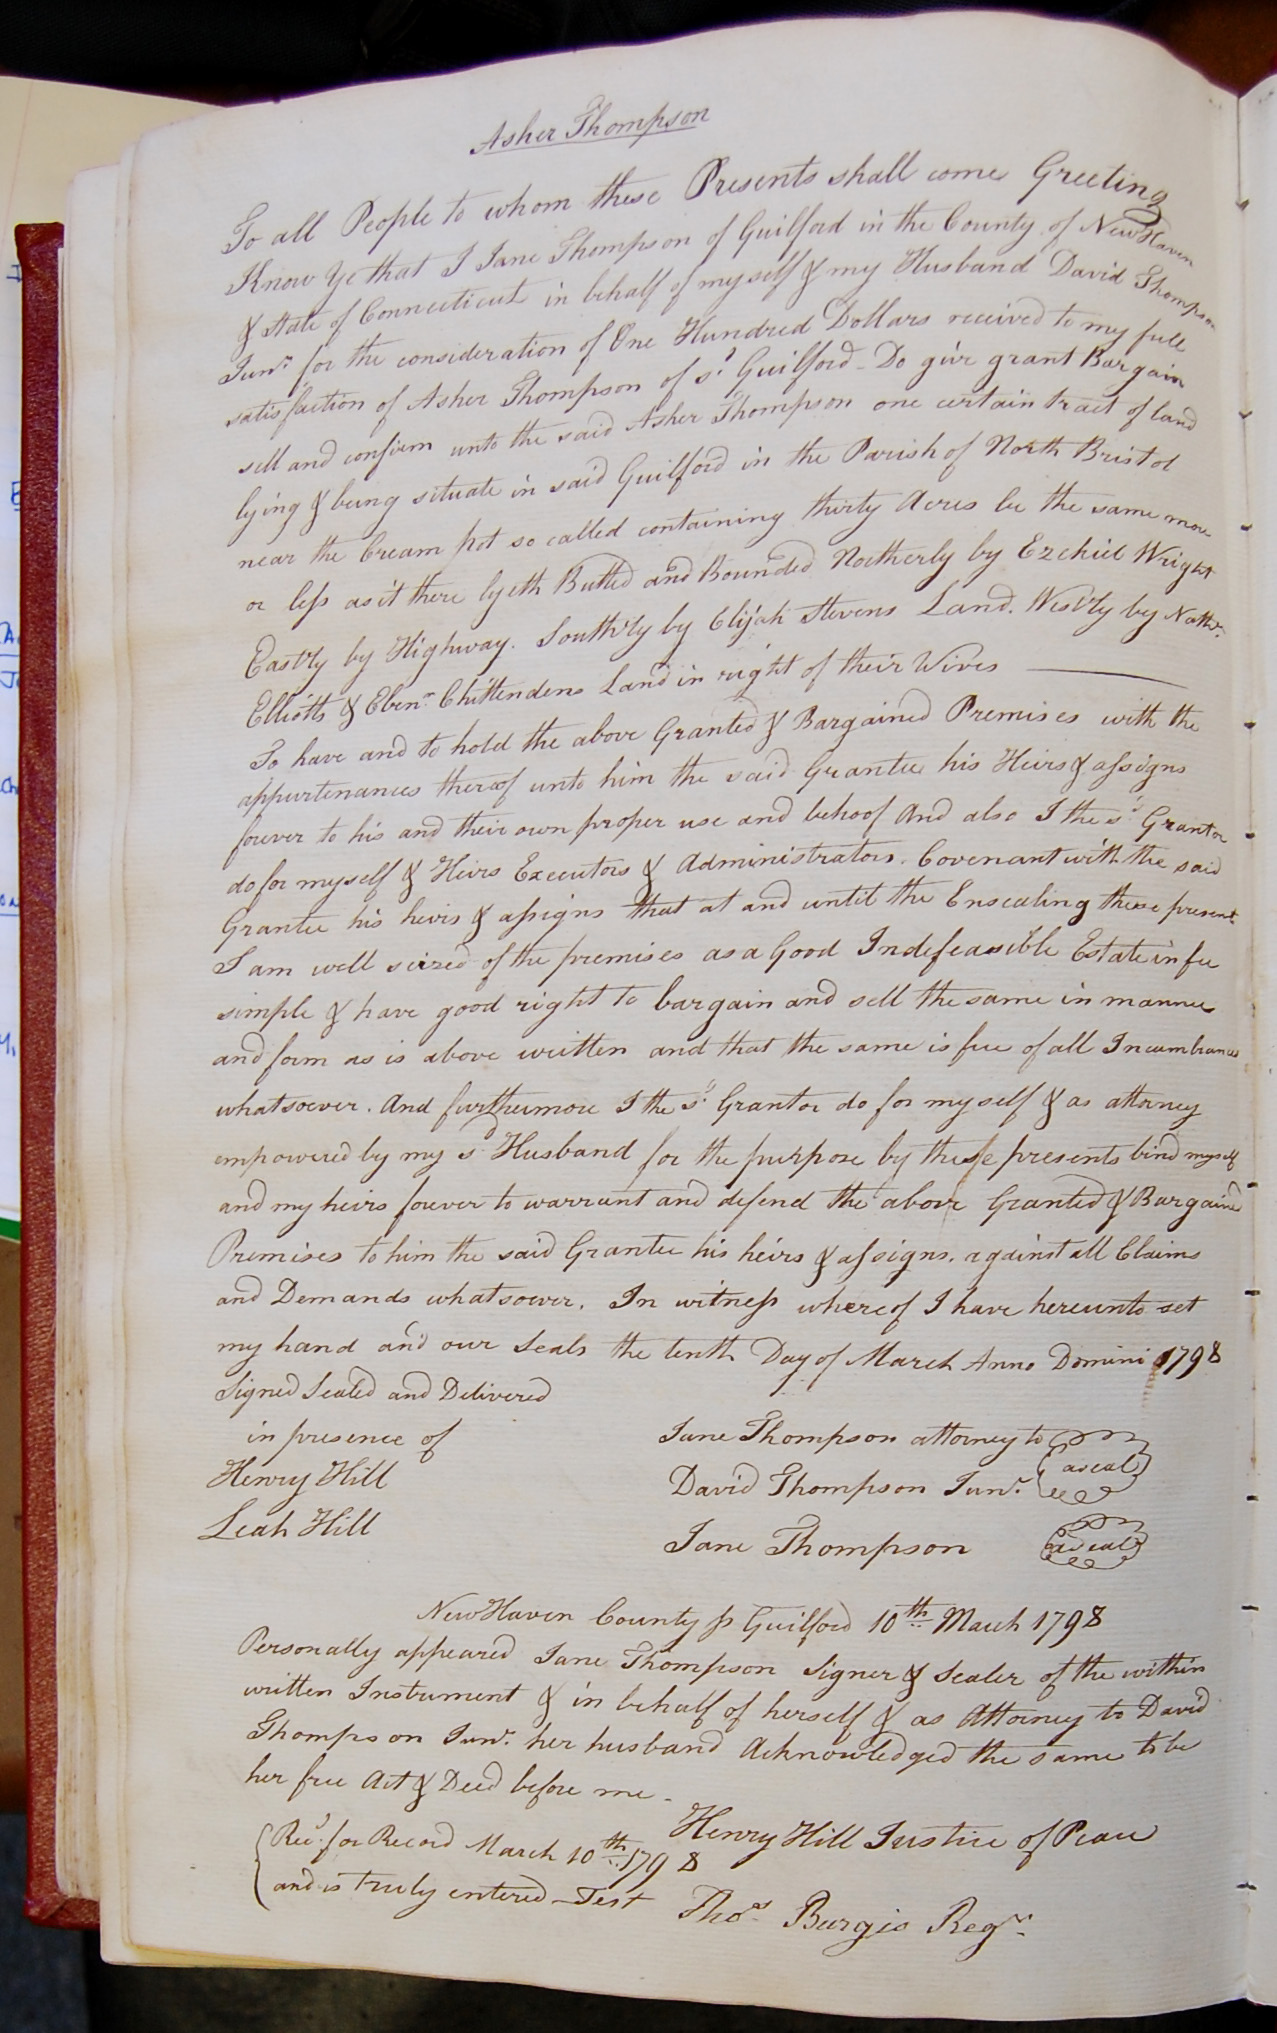 Asher Thompson
To all People to whom these Presents shall come Greeting
Know Ye that I Jane Thompson of Guilford in the County of New Haven
& State of Connecticut in behalf of myself & my Husband David Thompson
Junr. for the consideration of One Hundred Dollars received to my full
satisfaction of Asher Thompson of sd. Guilford - Do give grant Bargain
sell and confirm unto the said Asher Thompson one certain tract of land
lying & being situate in said Guilford in the Parish of North Bristol
near the Cream pot so called containing thirty Acres be the same more
or less as it there lyeth Butted and Bounded Northerly by Ezekiel Wright
Eastrly by Highway. Southrly by Elijah Stevens Land. Westrly by Nathl.
Elliotts & Ebenr. Chittendens Land in right of their Wives
To have and to hold the above Granted & Bargained Premises with the
appurtenances thereof unto him the said Grantee his Heirs & assigns
forever to his and their own proper use and behoof And also I the sd. Grantor
do for myself & Heirs Executors & Administrators. Covenant with the said
Grantee his heirs & assigns that at and until the Ensealing these present
I am well seized of the premises as a Good Indefeasible Estate in fee
simple & have good right to bargain and sell the same in manner
and form as is above written and that the same is free of all Incumbrances
whatsoever. And furthermore I the sd. Grantor do for myself & as attorney
empowered by my sd Husband for the purpose by these presents bind myself
and my heirs forever to warrant and defend the above Granted & Bargained
Premises to him the said Grantee his heirs & assigns. against all Claims
and Demands whatsoever. In witness whereof I have hereunto set
my hand and our Seals the tenth Day of March Anno Domini 1798
Signed Sealed and Delivered
in presence of
Henry Hill
Leah Hill
Jane Thompson attorney to
David Thompson Junr. a seal
Jane Thompson a seal
New Haven County ss Guilford 10th March 1798
Personally appeared Jane Thompson Signer & Sealer of the within
written Instrument & in behalf of herself & as Attorney to David
Thompson Junr. her husband Acknowledged the same to be
her free Act & Deed before me -
Henry Hill Justice of Peace
Recd. for Record March 10th 1798
and is truly entered - Test Thos. Burgis Regr.